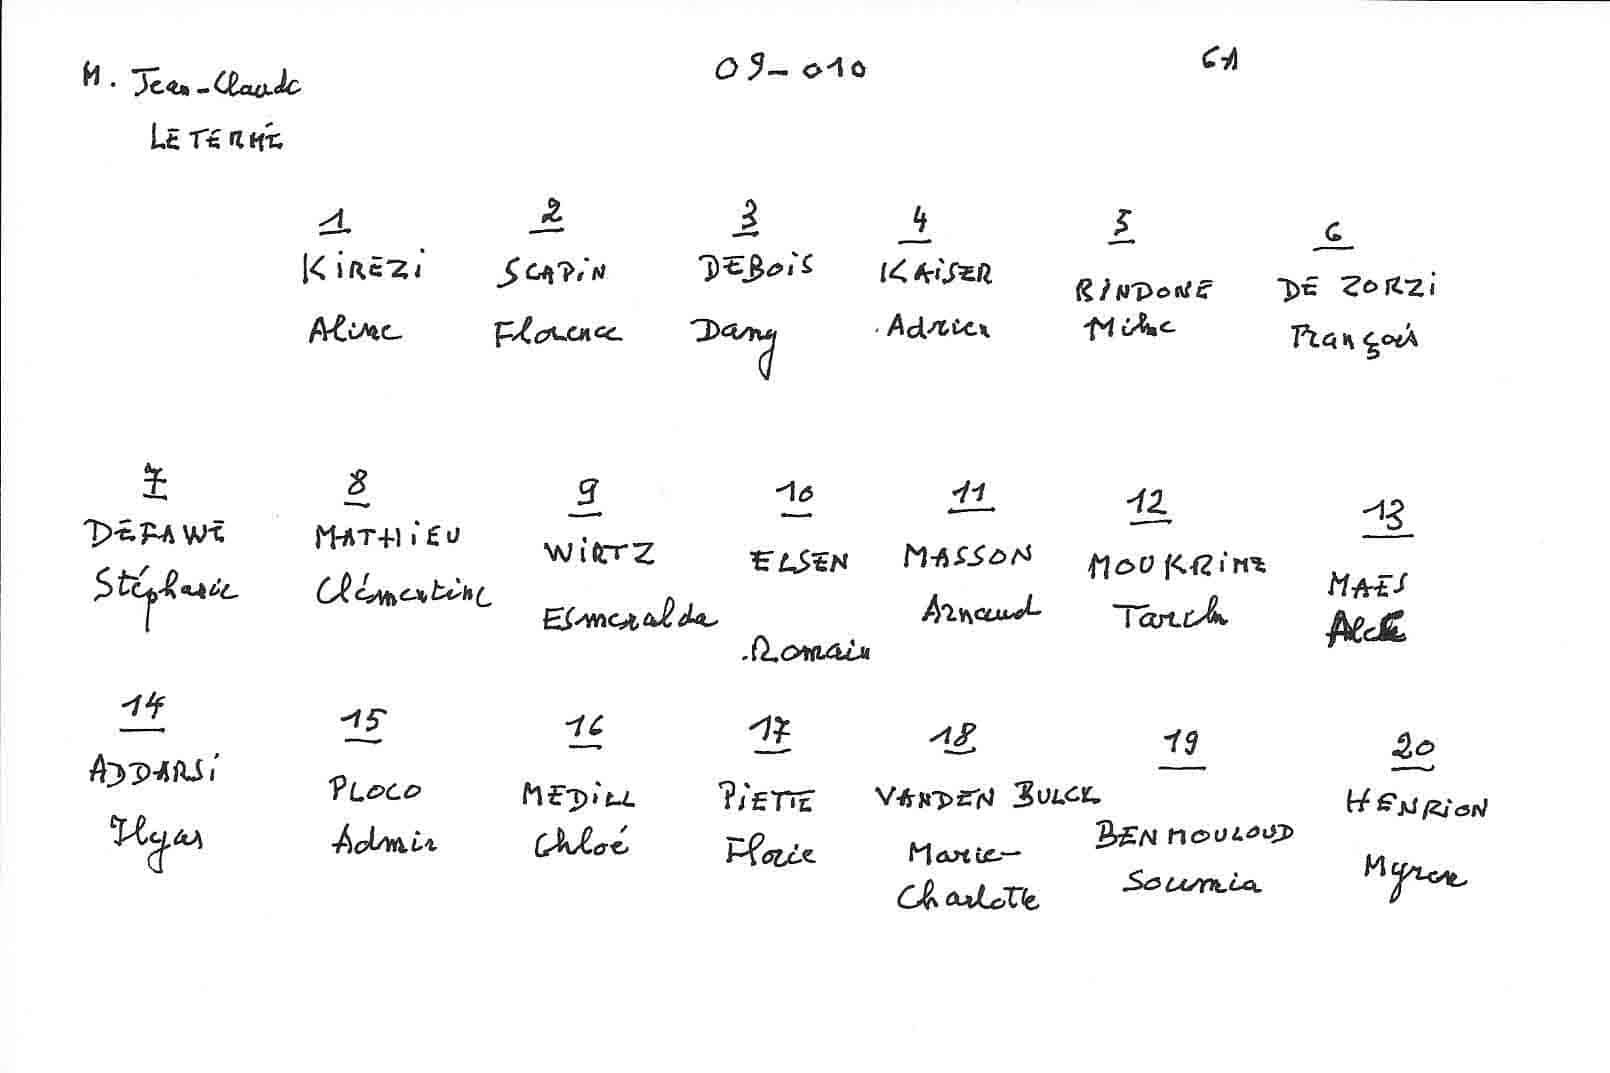 M. Jean-Claude 09-010 6A
LETERME
1 2 3 4 5 6
KIREZI SCAPIN DEBOIS KAISER RINDONE DE ZORZI
Aline Florence Dany Adrien Milne François
7 8 9 10 11 12 13
DEFAWE MATHIEU WIRTZ ELSEN MASSON MOUKRIME MAES
Stéphanie Clémentine Esmeralda Romain Arnaud Tarek
14 15 16 17 18 19 20
ADDARSI PLOCO MEDILL PIETTE VANDEN BULCK BENMOULOUD HENRION
Ilyas Admir Chloé Florie Marie- Soumia Myron
Charlotte